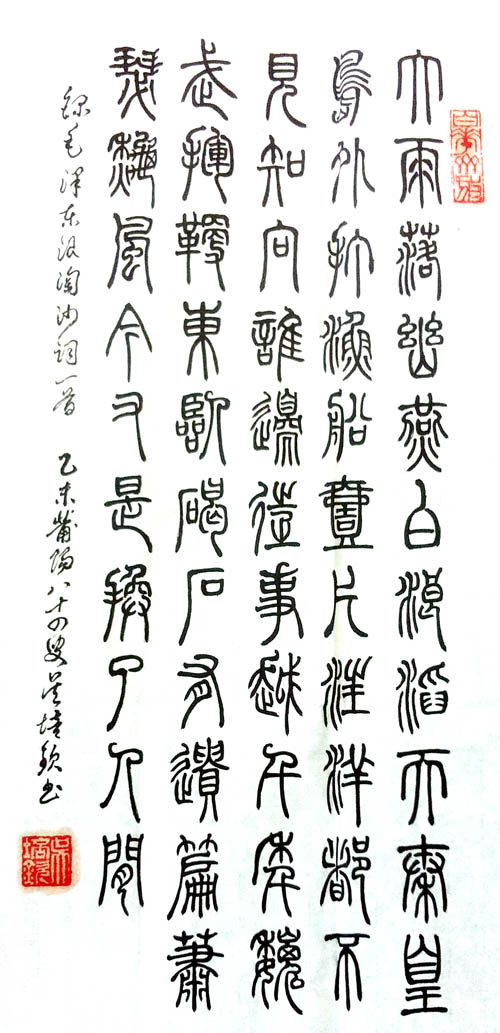 大雨落幽燕白浪滔天秦皇
島外打漁船壹片汪洋都不
見知向誰邊往事越千年魏
武揮鞭東臨碣石有遺篇蕭
瑟龝風今又是換了人間
錄毛泽东浪淘沙词一首 乙未莆陽八十四叟吴培钦书